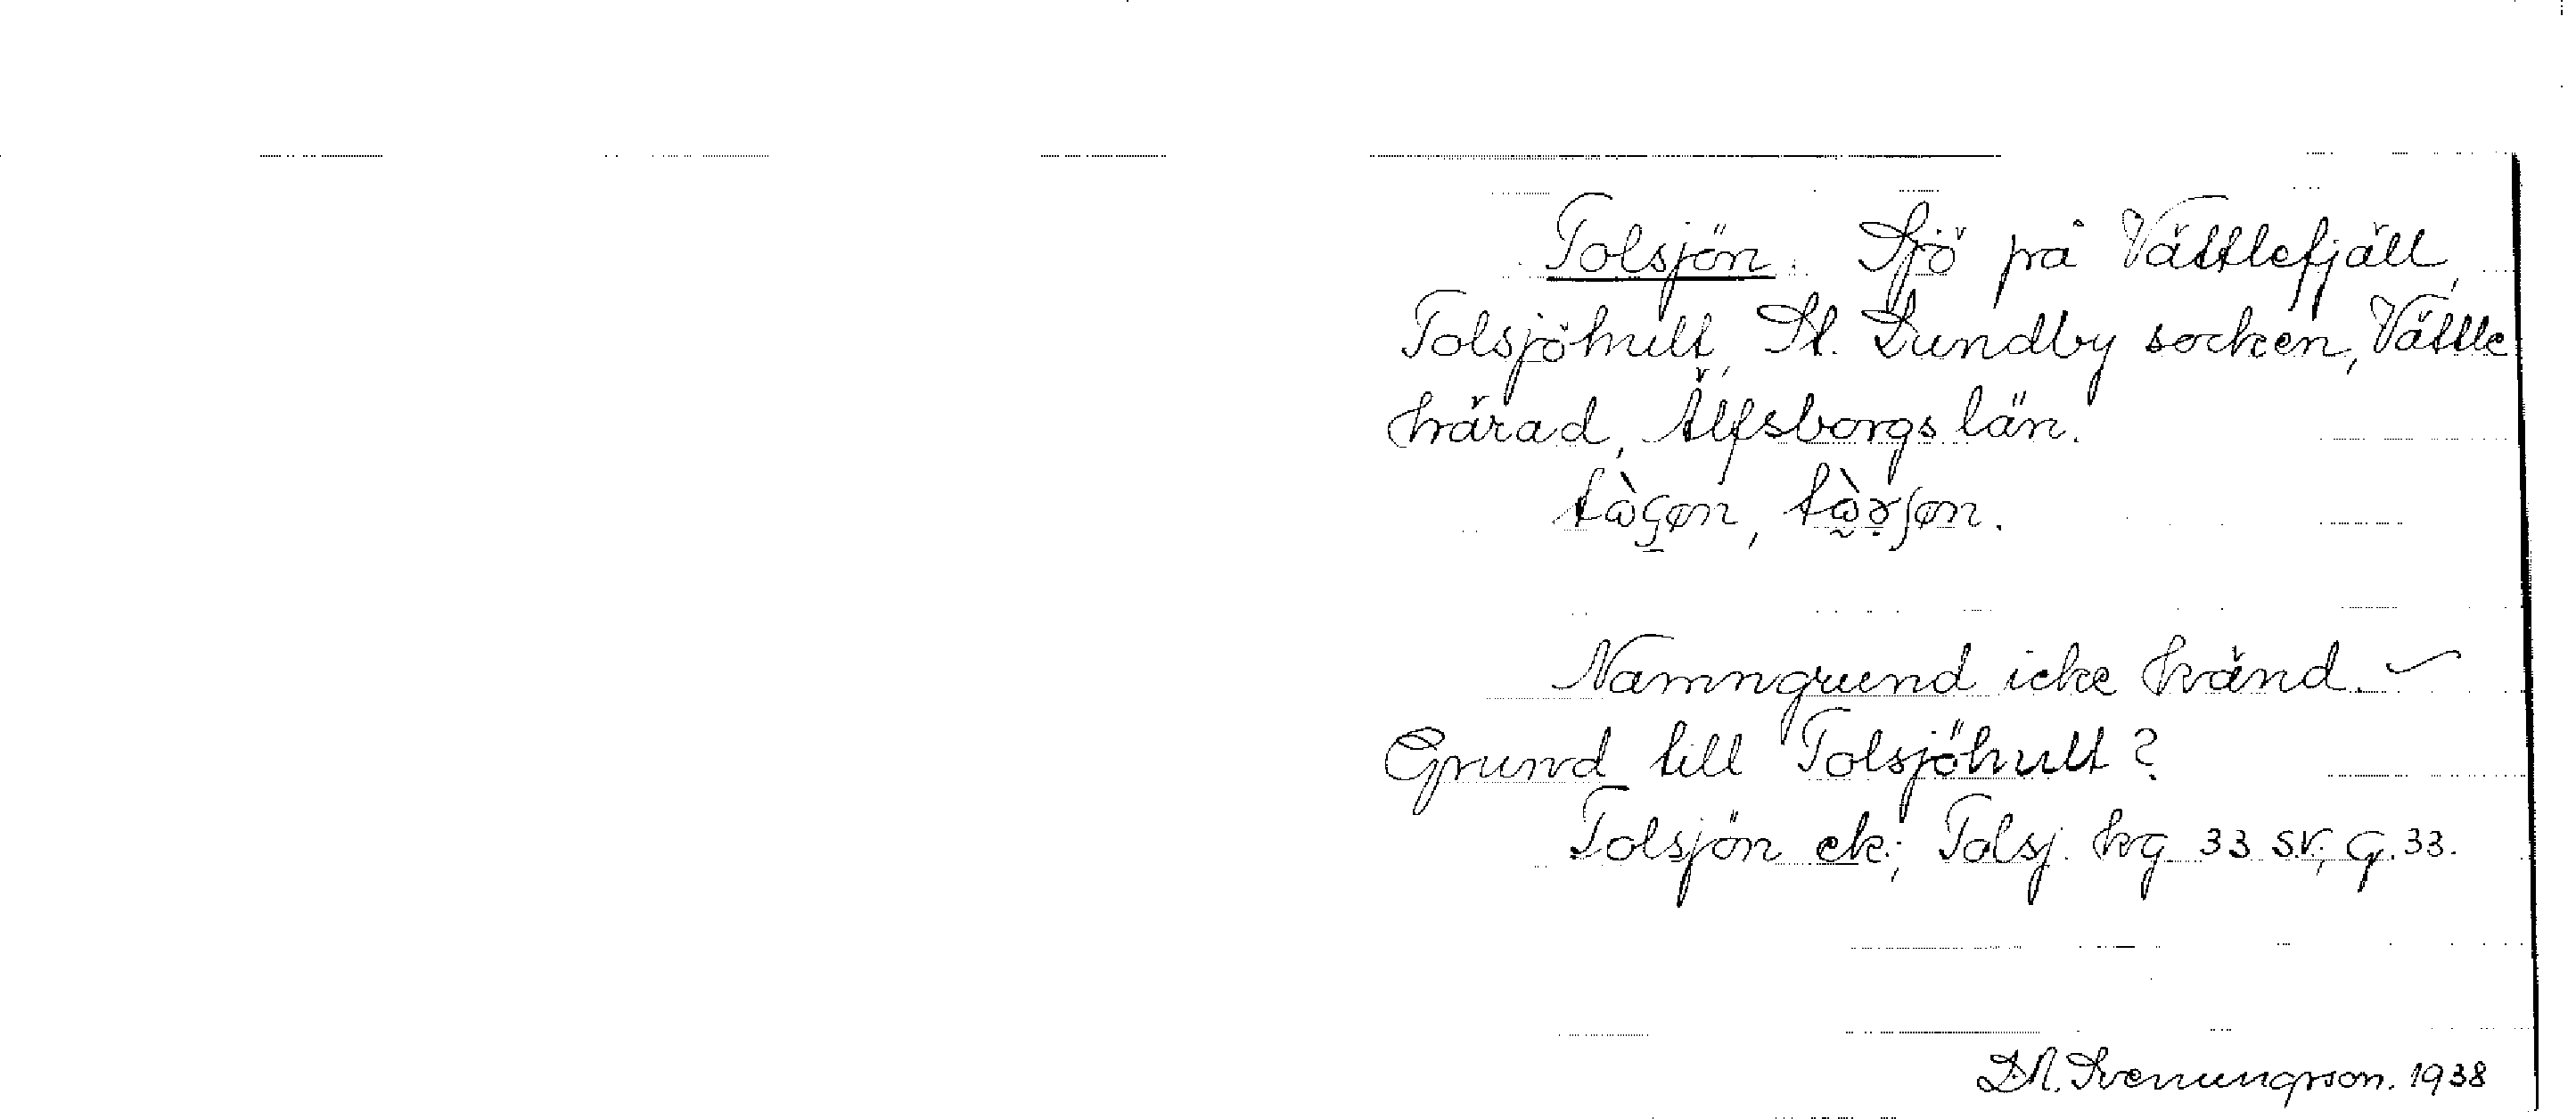 Tolsjön. Sjö på Vättlefjäll,
Tolsjöhult, St. Lundby socken, Vättle
härad, Älfsborgs län.
Namngrund icke känd. –
Grund till Tolsjöhult?
Tolsjön ek.; Tolsj. kg 33 SV; G. 33.
Svenungsson. 1938